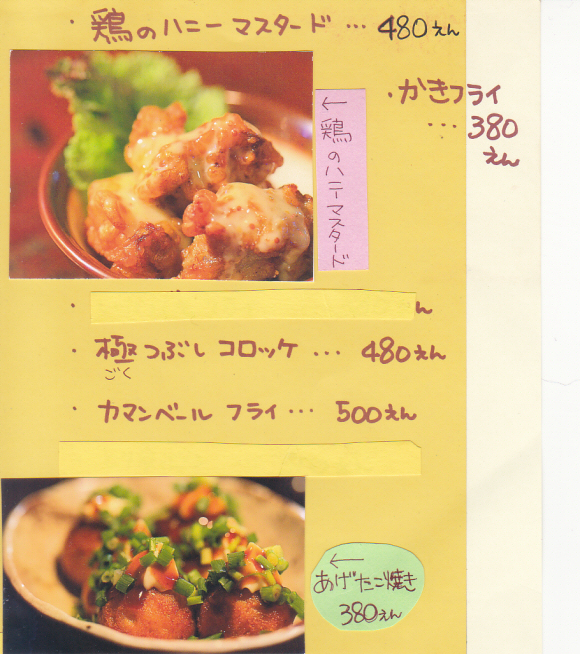 ・鶏のハニーマスタード … 480えん
・かきフライ
… 380
えん
←鶏のハニーマスタード
・ ん
・極つぶし コロッケ … 480えん
ごく
・カマンベール フライ … 500えん
←
あげたこ焼き
380えん